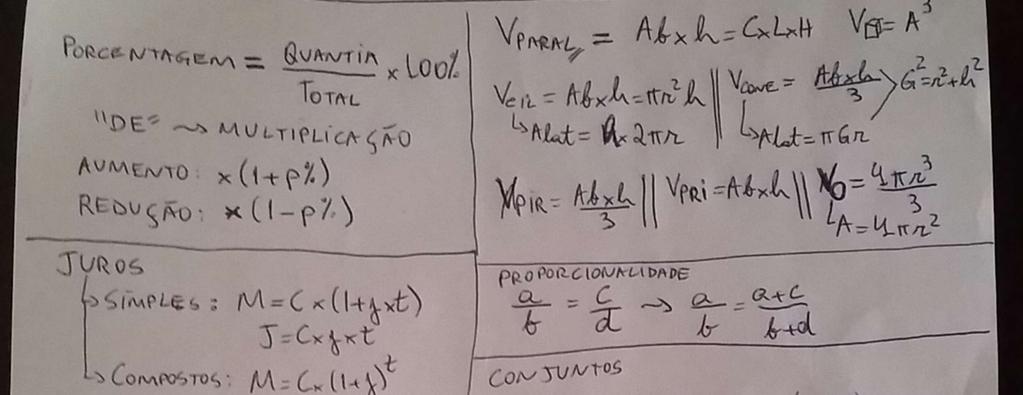 PORCENTAGEM = QUANTIA / TOTAL × 100%
"DE" ⇝ MULTIPLICAÇÃO
AUMENTO: ×(1+p%)
REDUÇÃO: ×(1-p%)
JUROS
↳ SIMPLES: M=C×(1+j×t)
J=C×j×t
↳ COMPOSTOS: M=C×(1+j)^t
V PARAL = Ab×h=C×L×H V□=A³
V CIL = Ab×h=πr²h || V CONE = Ab×h / 3 > G²=r²+h²
↳ Alat=h×2πr ↳ Alat=πGr
V PIR = Ab×h / 3 || V PRI=Ab×h || VO=4πr³ / 3
↳ A=4πr²
PROPORCIONALIDADE
a/b = c/d ⇝ a/b = a+c / b+d
CONJUNTOS